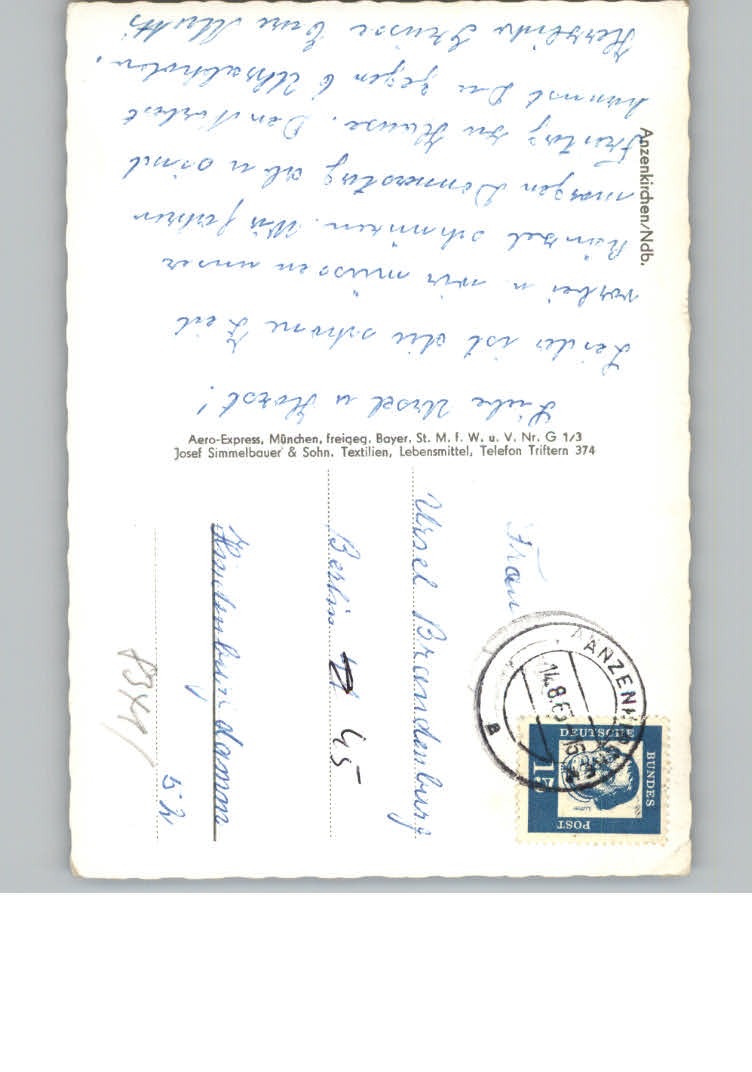 Anzenkirchen/Ndb.
Liebe Ursel u Horst!
Leider ist die schöne Zeit
vorbei u. wir müssen unser
Bündel schnüren. Wir fahren
morgen Donnerstag ab u sind
Freitag zu Hause. Den
kannst Du gegen 6 Uhr abholen.
Herzliche Grüsse Eure Mutti
Aero-Express, München, freigeg. Bayer. St. M. f. W. u. V. Nr. G 1/3
Josef Simmelbauer & Sohn. Textilien, Lebensmittel, Telefon Triftern 374
Frau
Ursel Brandenburg
Berlin 45
Hindenburgdamm
57
DEUTSCHE
BUNDES
POST
15
14.8.6
a